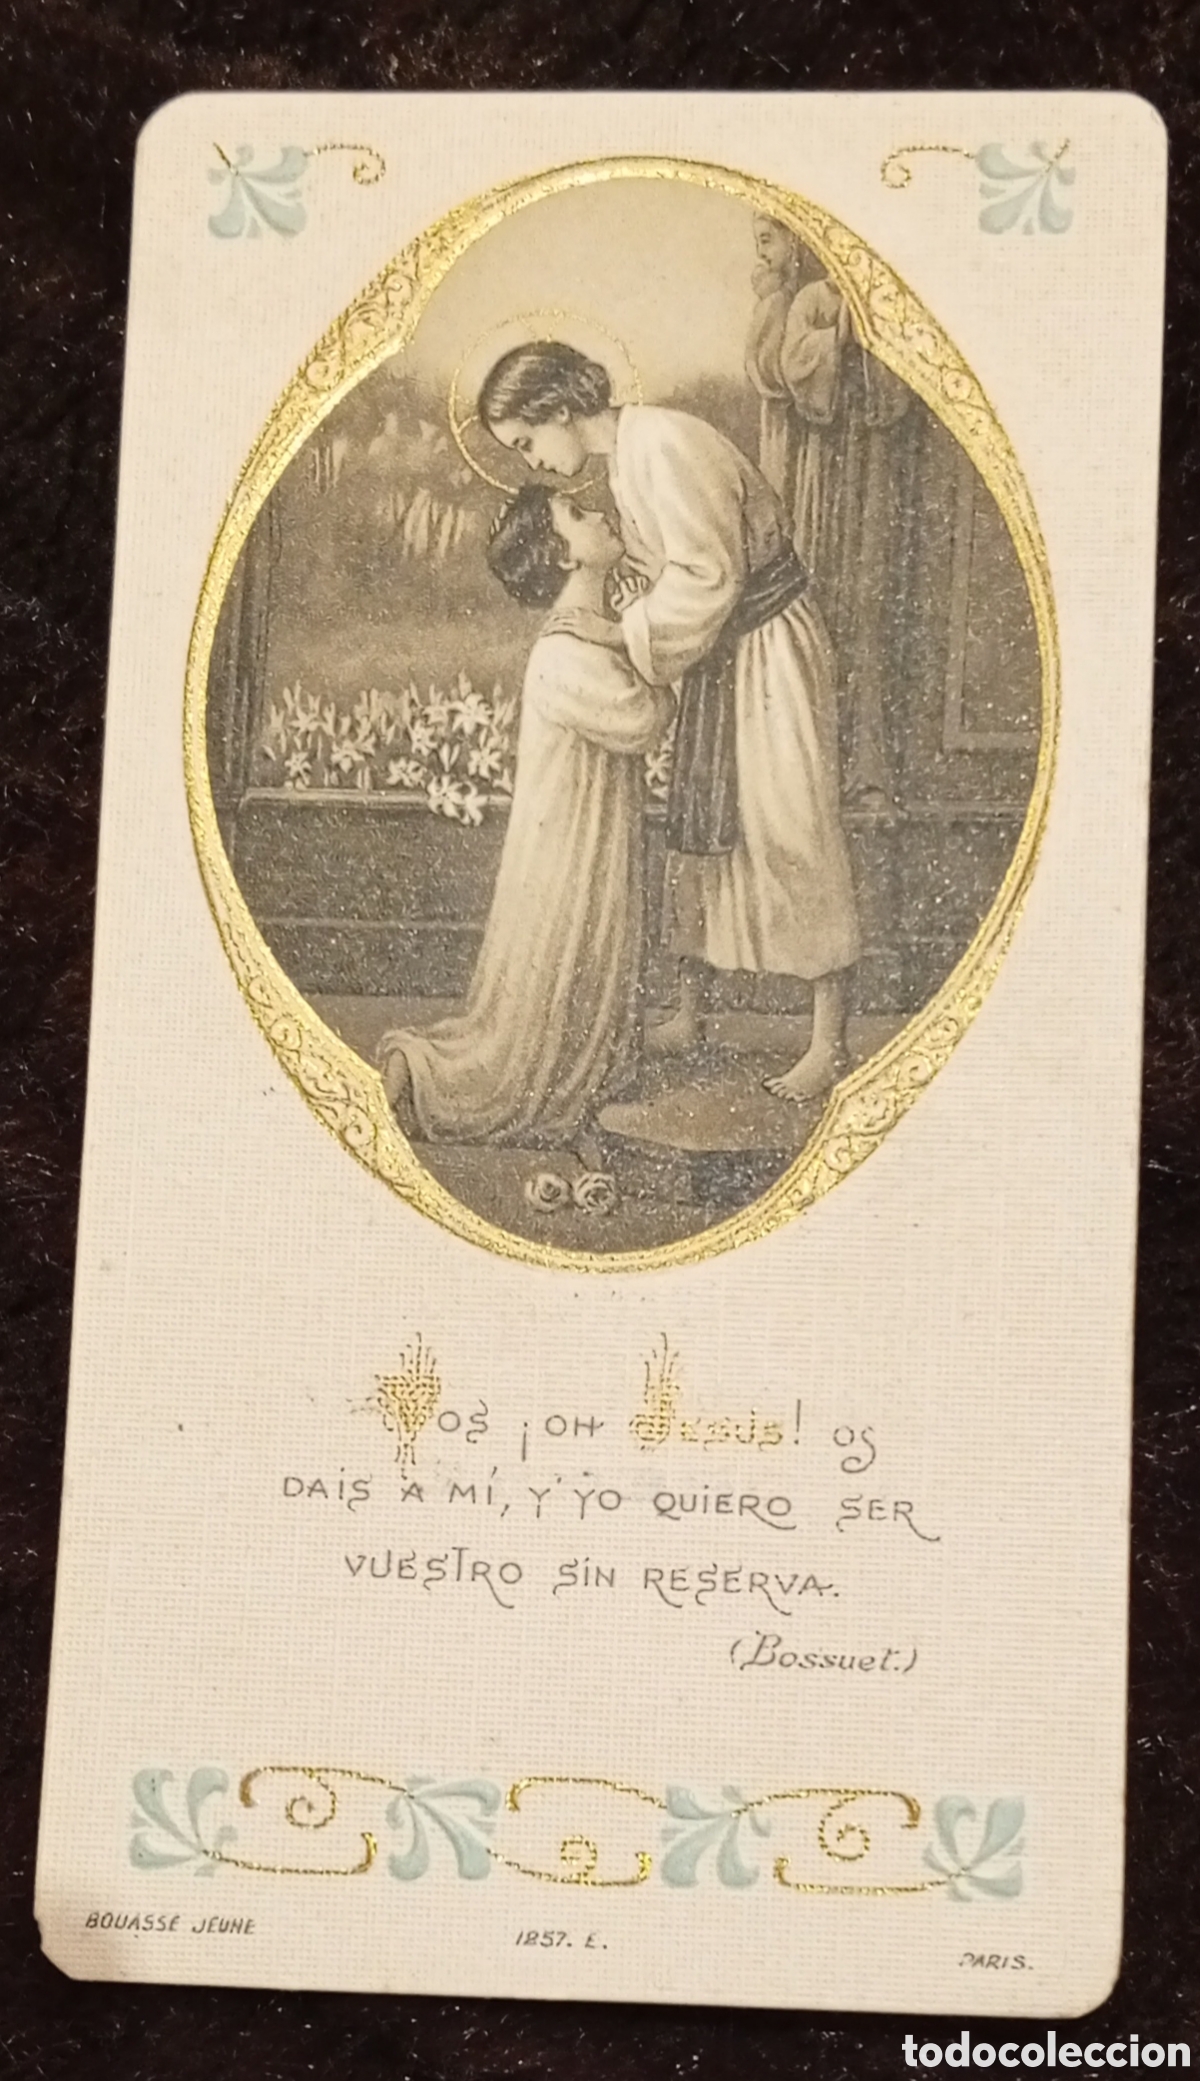 Vos ¡oh Jesús! os
dais a mí, y yo quiero ser
vuestro sin reserva.
(Bossuet.)
BOUASSE JEUNE
1857. E.
PARIS.
todocoleccion